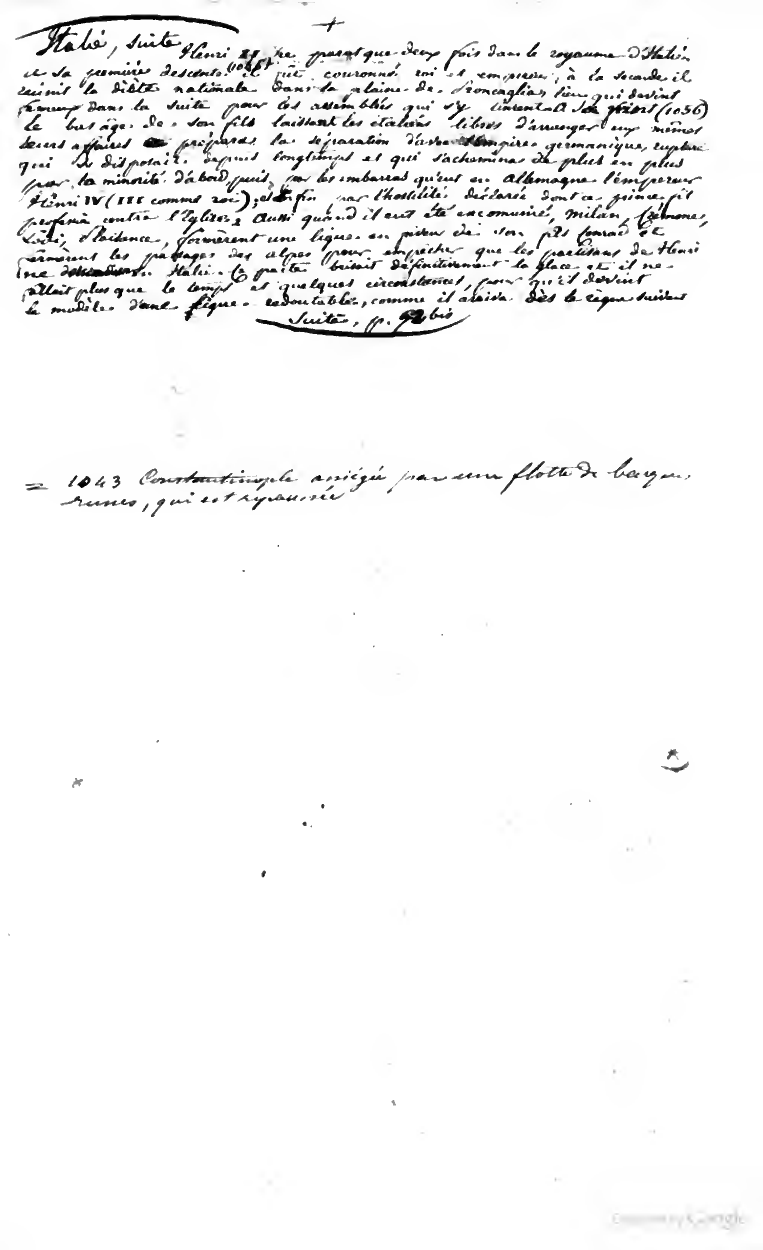 +
Italie, suite
Henri III ne parut que deux fois dans le royaume d'Italie
à sa première descente (1046) il fut couronné roi et empereur; à la seconde il
réunit la diète nationale dans la plaine de Roncaglia, lieu qui devint
fameux dans la suite pour les assemblées qui s'y tinrent. A sa mort (1056)
le bas âge de son fils laissant les italiens libres d'arranger eux mêmes
leurs affaires prépara la séparation d'avec l'empire germanique, rupture
qui se disposait depuis longtemps et qui s'achemina de plus en plus
par la minorité d'abord, puis par les embarras qu'eut en Allemagne l'empereur
Henri IV (III comme roi), et enfin par l'hostilité déclarée dont ce prince fit
profession contre l'Eglise. Aussi quand il eut été excomunié, Milan, Crémone,
Lodi, Plaisance, formèrent une ligue en faveur de son fils Conrad et
fermèrent les passages des alpes pour empêcher que les partisans de Henri
ne en Italie. Ce pacte brisait définitivement la glace et il ne
fallait plus que le temps et quelques circonstances, pour qu'il devint
le modèle d'une ligue redoutable, comme il arriva dès le règne suivant
Suite, p. 92 bis
= 1043 Constantinople assiégée par une flotte de barques
russes, qui est repoussée
Google